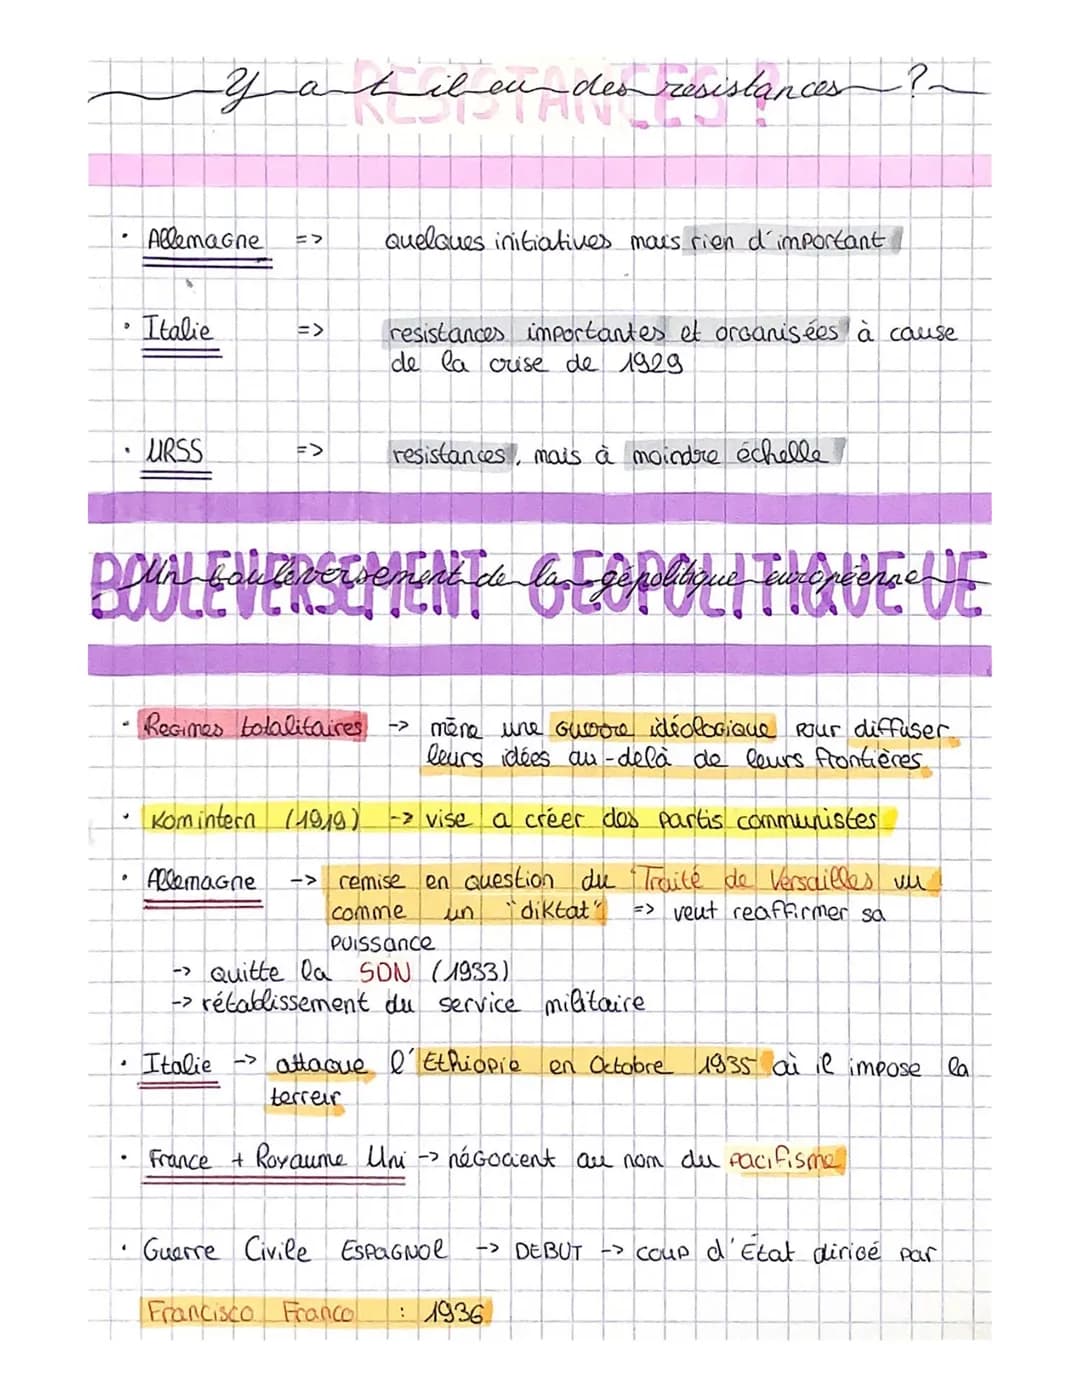 Y a t il eu des resistances ?
RESISTANCES ?
· Allemagne => quelques initiatives mais rien d'important
· Italie => resistances importantes et organisées à cause
de la crise de 1929
· URSS => resistances, mais à moindre échelle
BOULEVERSEMENT GEOPOLITIQUE UE
Un bouleversement de la géopolitique européenne
· Regimes totalitaires -> mène une Guerre idéologique pour diffuser
leurs idées au-delà de leurs frontières.
· Komintern (1919) -> vise a créer des partis communistes
· Allemagne -> remise en question du Traité de Versailles vu
comme un "diktat" => veut reaffirmer sa
puissance
-> quitte la SDN (1933)
-> rétablissement du service militaire
· Italie -> attaque l'Ethiopie en Octobre 1935 où il impose la
terreur
· France + Royaume Uni -> négocient au nom du pacifisme
· Guerre Civile ESPAGNOL -> DEBUT -> coup d'État dirigé par
Francisco Franco : 1936